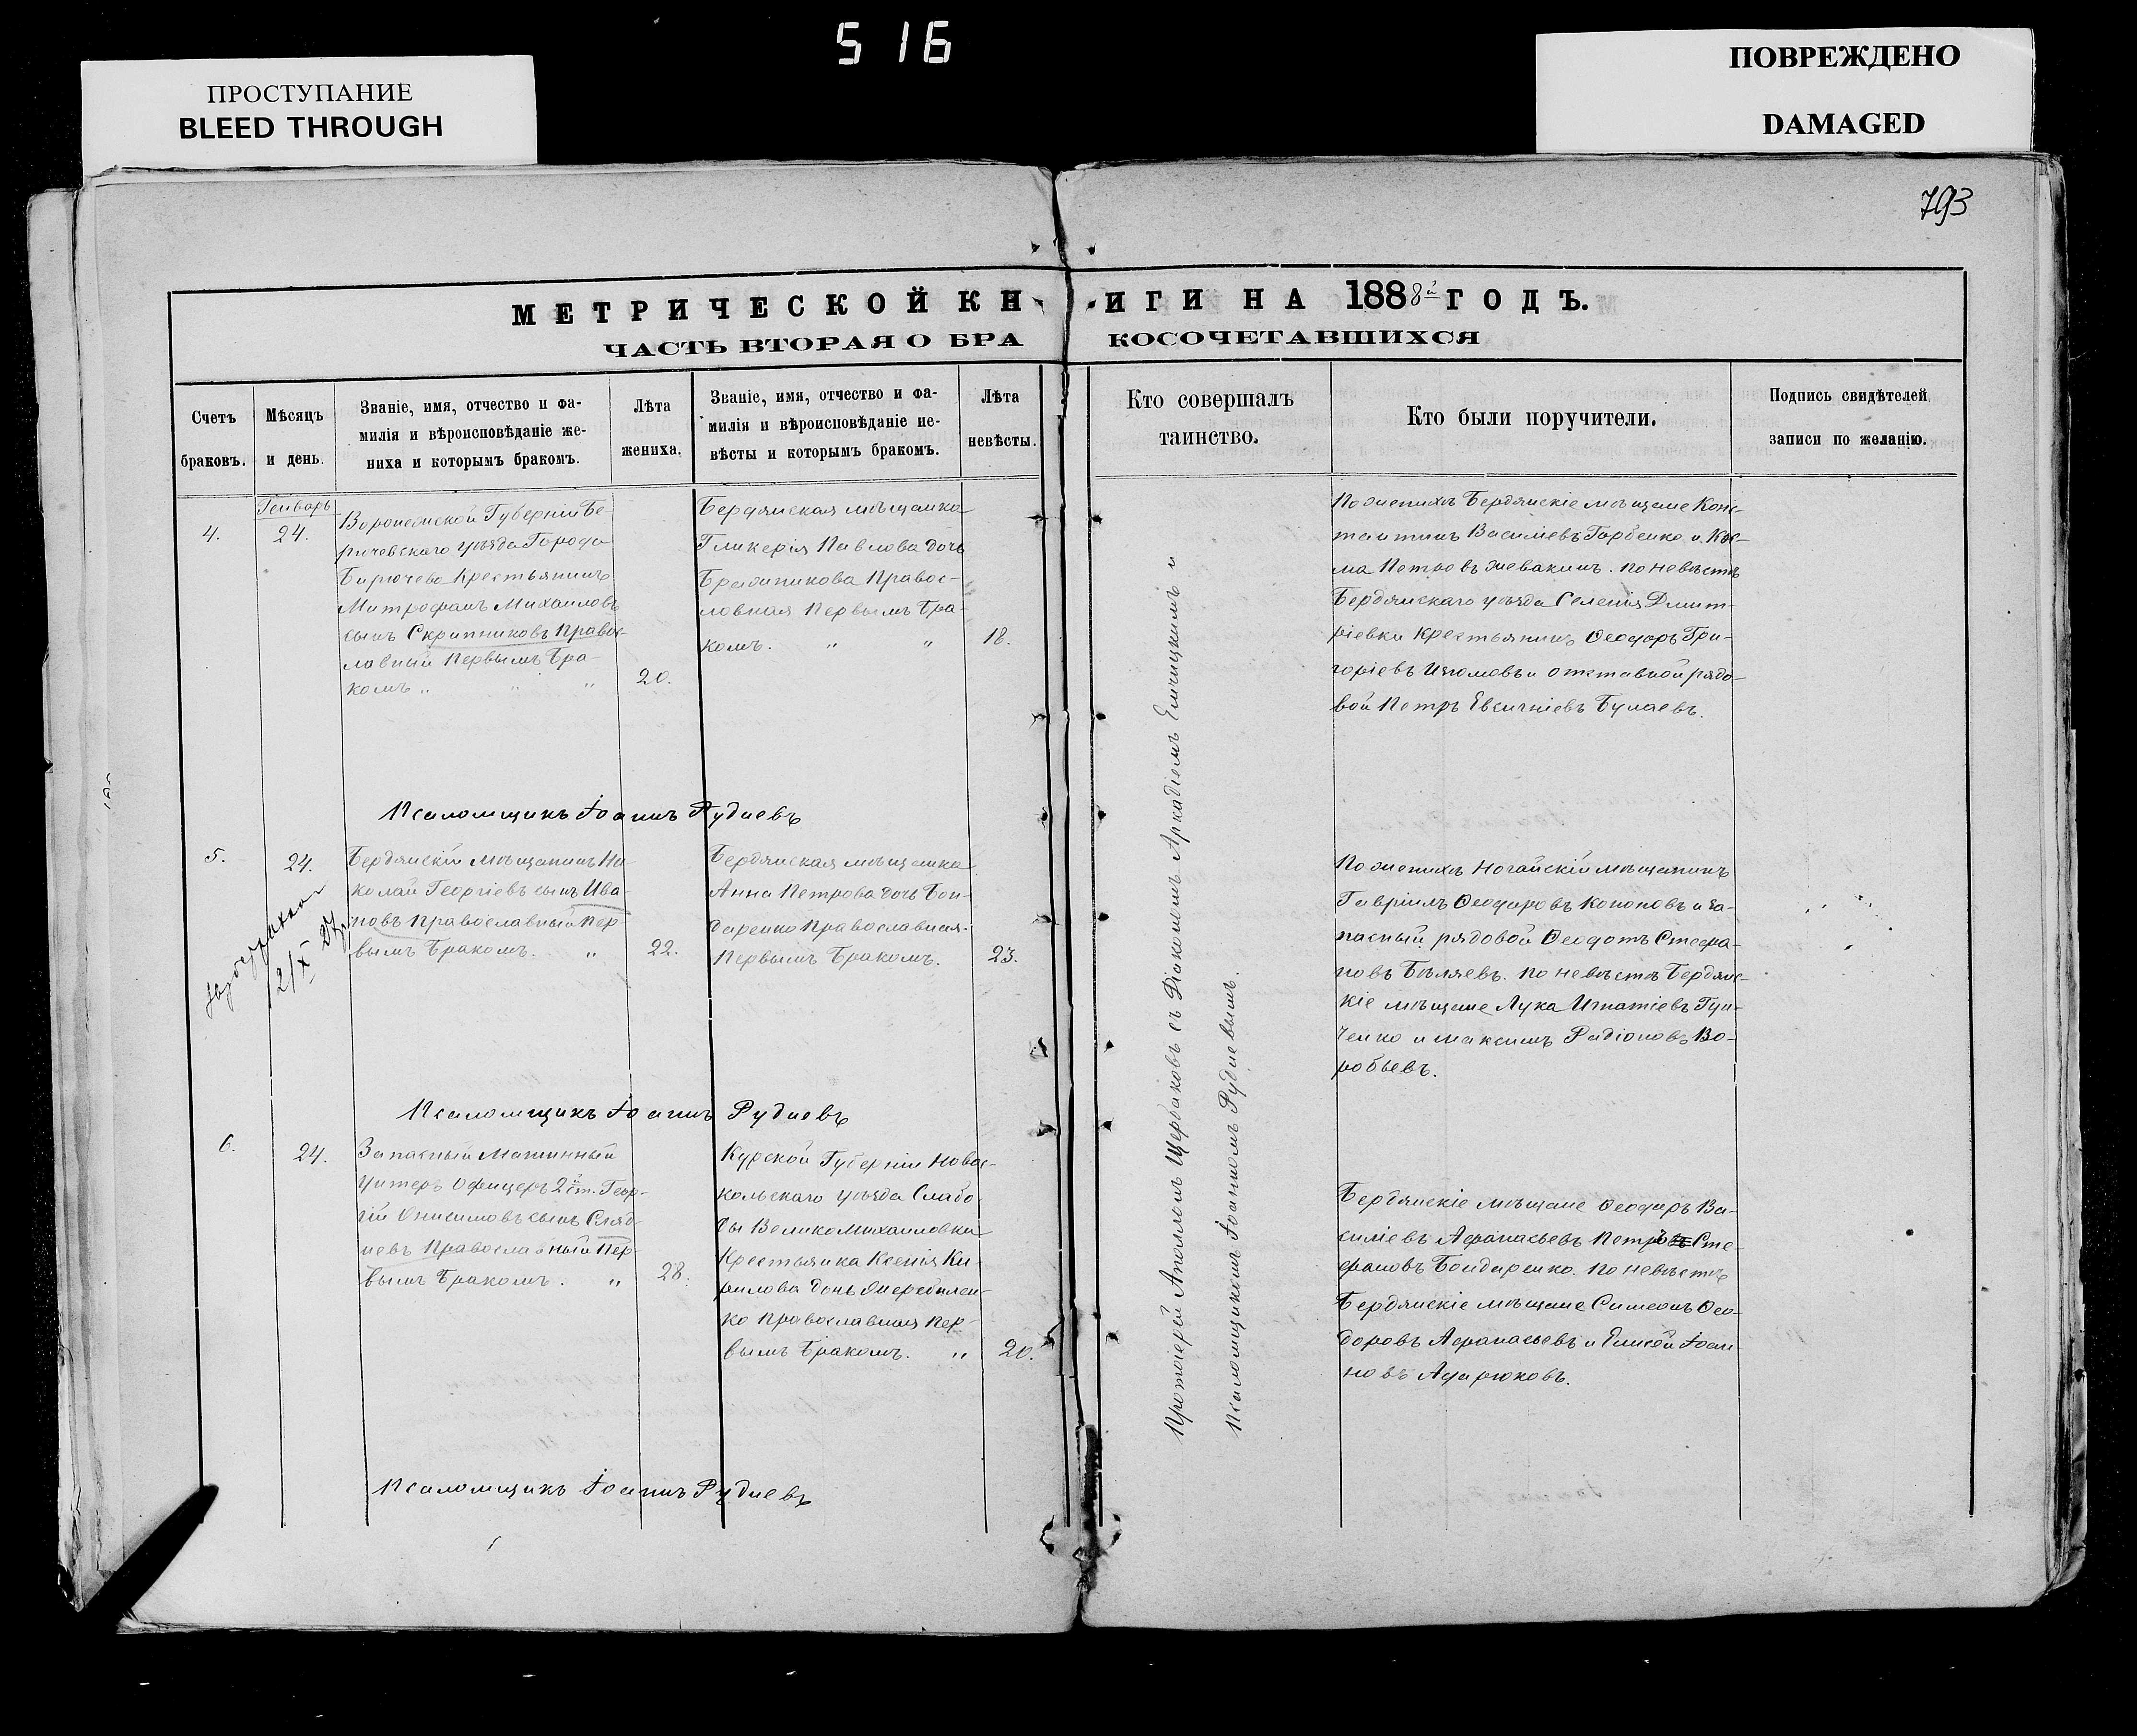 516
ПРОСТУПАНИЕ
BLEED THROUGH
ПОВРЕЖДЕНО
DAMAGED
793
МЕТРИЧЕСКОЙ КНИГИ НА 1888й ГОДЪ.
ЧАСТЬ ВТОРАЯ О БРАКОСОЧЕТАВШИХСЯ
Счетъ
браковъ.
Мѣсяцъ
и день.
Званіе, имя, отчество и фа-
милія и вѣроисповѣданіе же-
ниха и которымъ бракомъ.
Лѣта
жениха.
Званіе, имя, отчество и фа-
милія и вѣроисповѣданіе не-
вѣсты и которымъ бракомъ.
Лѣта
невѣсты.
Кто совершалъ
таинство.
Кто были поручители.
Подпись свидѣтелей
записи по желанію.
4.
Генварь
24.
Воронежской Губерніи Бе-
рючевскаго уѣзда Города
Бирючева Крестьянинъ
Митрофанъ Михаиловъ
сынъ Скрипниковъ Правос-
лавный Первымъ Бра-
комъ „ „ „
20.
Бердянская мѣщанка
Гликерія Павлова дочь
Правос-
ловная Первымъ Бра-
комъ. „ „
18.
По женихѣ Бердянскіе мѣщане Конс-
тантинъ Василіевъ Горбенко и Кос-
ма Петровъ Жевакинъ. По невѣстѣ
Бердянскаго уѣзда Селенія Дмит-
ріевки Крестьянинъ Ѳеодоръ Гри-
горіевъ Изюмовъ и отставной рядо-
вой Петръ Евсигніевъ Булаевъ.
Псаломщикъ Іоаннъ Рудневъ
5.
24.
Бердянскій мѣщанинъ Ни-
колай Георгіевъ сынъ Ива-
новъ Православный Пер-
вымъ Бракомъ. „
22.
Бердянская мѣщанка
Анна Петрова дочь Бон-
даренко Православная
Первымъ Бракомъ.
23.
По женихѣ Ногайскій мѣщанинъ
Гавріилъ Ѳеодоровъ Кононовъ и за-
пасный рядовой Ѳеодотъ Стефа-
новъ Бѣляевъ. По невѣстѣ Бердянс-
кіе мѣщане Лука Игнатіевъ Гун-
ченко и Максимъ Радіоновъ Во-
робьевъ.
21/X 27
Псаломщикъ Іоаннъ Рудневъ
6.
24.
Запасный Машинный
Унтеръ Офицеръ 2й ст. Геор-
гій Онисимовъ сынъ
Православный Пер-
вымъ Бракомъ. „
28.
Курской Губерніи Новос-
кольскаго уѣзда Слабо-
ды Великомихаиловки
Крестьянка Ксенія Ки-
рилова дочь
Православная Пер-
вымъ Бракомъ. „
20.
Бердянскіе мѣщане Ѳеодоръ Ва-
силіевъ Афанасьевъ Петръ Сте-
фановъ Бондаренко. По невѣстѣ
Бердянскіе мѣщане Симеонъ Ѳео-
доровъ Афанасьевъ и Елисей Іоан
новъ Адарюковъ.
Псаломщикъ Іоаннъ Рудневъ
Протоіерей Аполлонъ Щербаковъ съ Діакономъ Аркадіемъ Ельчицкимъ и
Псаломщикомъ Іоанномъ Рудневымъ.